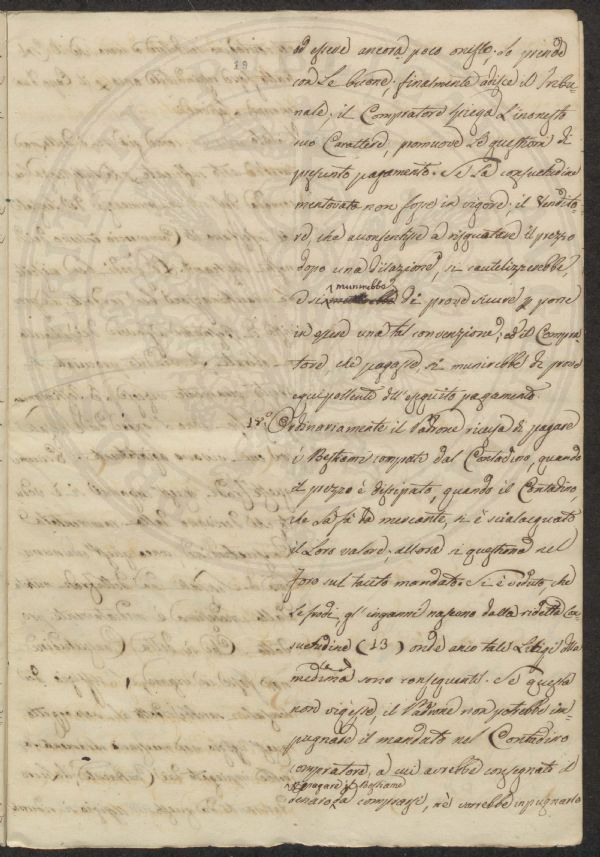 ad essere ancora poco onesto. Lo prende
con Le buone; finalmente adisce il Tribu-
nale; il Compratore spiega L'inonesto
suo Carattere, promuove Le questioni di
presunto pagamento. Se La consuetudine
mentovata non fosse in vigore; il Vendito-
re, che aconsentisse a risquotere il prezzo
dopo una dilazione, si cautelizzerebbe,
e si munirebbe di prove sicure p porre
in essere una tal convenzione; ed il Compra-
tore, che pagasse, si munirebbe di prove
equipollenti dell'eseguito pagamento.
Ordinariamente il Padrone ricusa di pagare
i Bestiami comprati dal Contadino, quando
il prezzo è dissipato, quando il Contadino,
che La fà da mercante, si è scialacquato
il Loro valore; allora si questiona nel
Foro sul tacito mandato. Si è veduto, che
Le frodi, gl'inganni nascono dalla ridetta Con-
suetudine (13) onde anco tali Letigi alla
medesima sono conseguenti. Se questa
non vigesse, il Padrone non potrebbe im-
pugnare il mandato nel Contadino
compratore, a cui avrebbe consegnato il
pagare il Bestiame
denaro comprarsi, nè vorrebbe impugnarlo